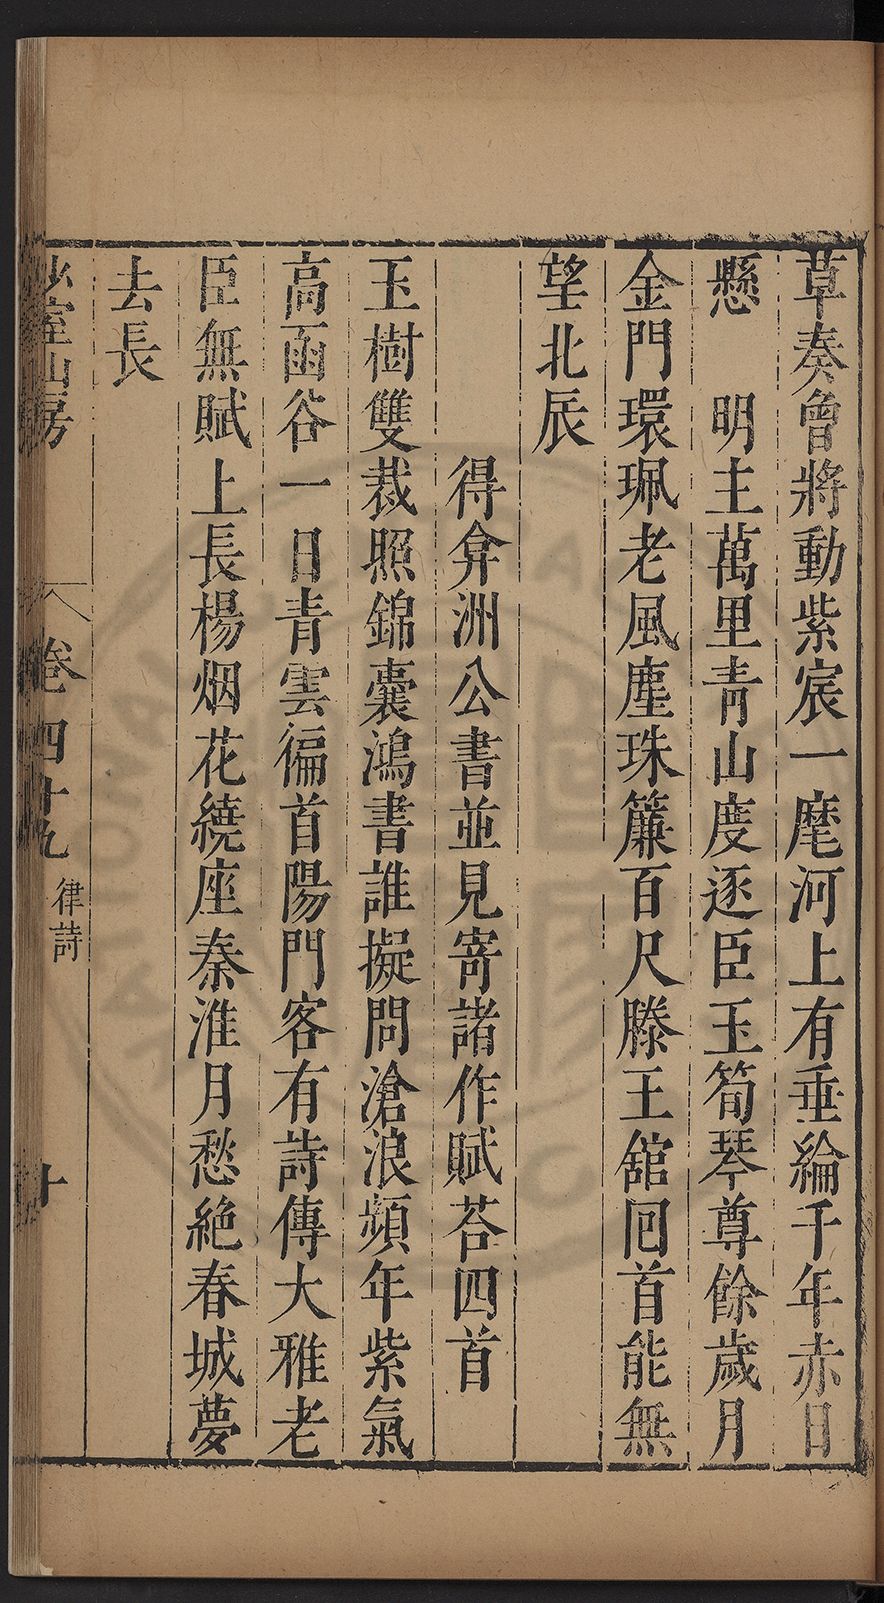 草奏曾將動紫宸一麾河上有垂綸千年赤日
懸　明主萬里青山度逐臣玉筍琴尊餘歲月
金門環珮老風塵珠簾百尺滕王舘囘首能無
望北辰
得弇洲公書並見寄諸作賦荅四首
玉樹雙裁照錦囊鴻書誰擬問滄浪頻年紫氣
高函谷一日青雲徧首陽門客有詩傳大雅老
臣無賦上長楊烟花繞座秦淮月愁絶春城夢
去長
少室山房
卷四十九
律詩
十